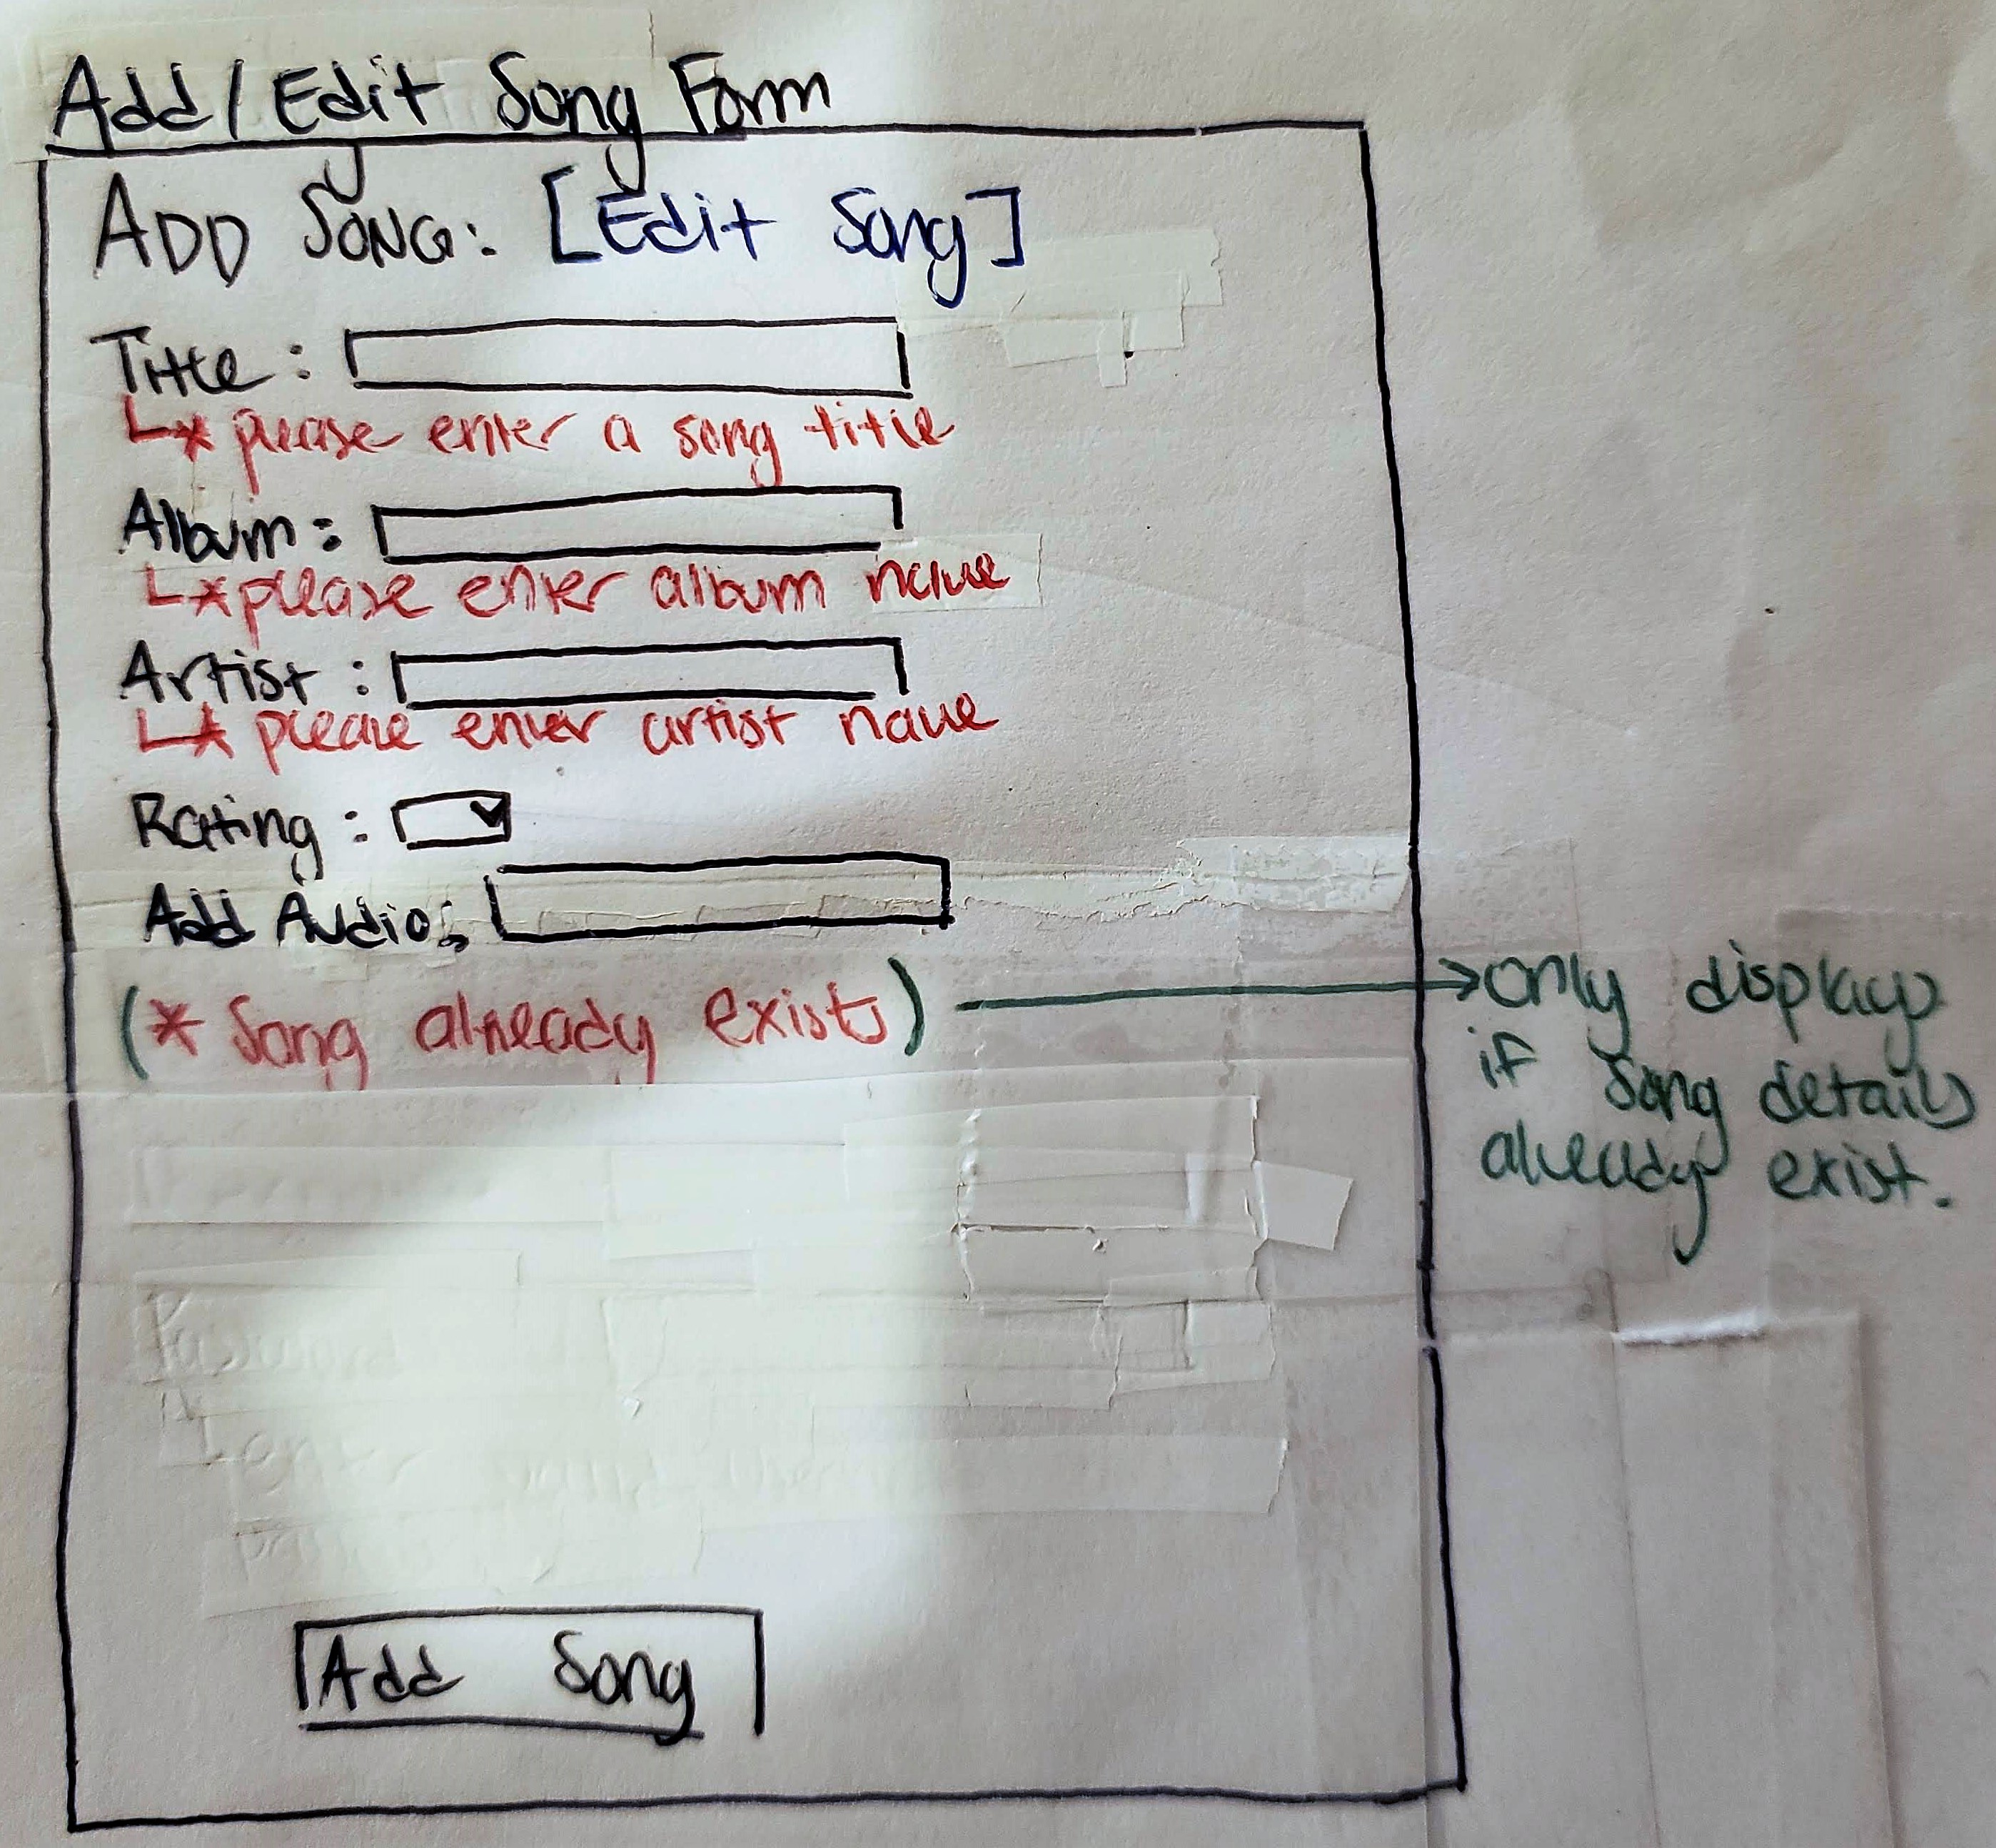 Add/Edit Song Form
ADD SONG: [Edit Song]
Title:
* please enter a song title
Album:
* please enter album name
Artist:
* please enter artist name
Rating:
Add Audio:
(* Song already exists)
→ only displays
if song details
already exist.
Add Song